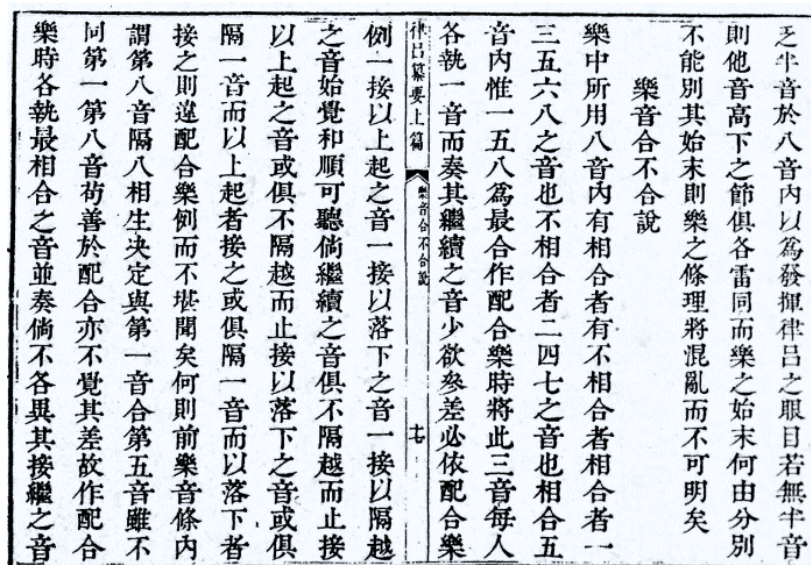 乏半音於八音內以爲發揮律呂之眼目若無半音
則他音高下之節俱各雷同而樂之始末何由分別
不能別其始末則樂之條理將混亂而不可明矣
樂音合不合說
樂中所用八音內有相合者有不相合者相合者一
三五六八之音也不相合者二四七之音也相合五
音內惟一五八爲最合作配合樂時將此三音每人
各執一音而奏其繼續之音少欲參差必依配合樂
律呂纂要上篇
樂音合不合說
十七
例一接以上起之音一接以落下之音一接以隔越
之音始覺和順可聽倘繼續之音俱不隔越而止接
以上起之音或俱不隔越而止接以落下之音或俱
隔一音而以上起者接之或俱隔一音而以落下者
接之則違配合樂例而不堪聞矣何則前樂音條內
謂第八音隔八相生决定與第一音合第五音雖不
同第一第八音苟善於配合亦不覺其差故作配合
樂時各執最相合之音並奏倘不各異其接繼之音